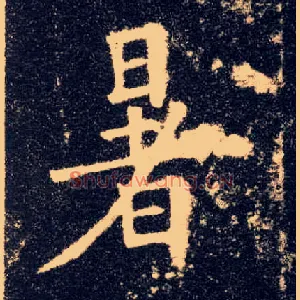 暑
Shufawang.cn